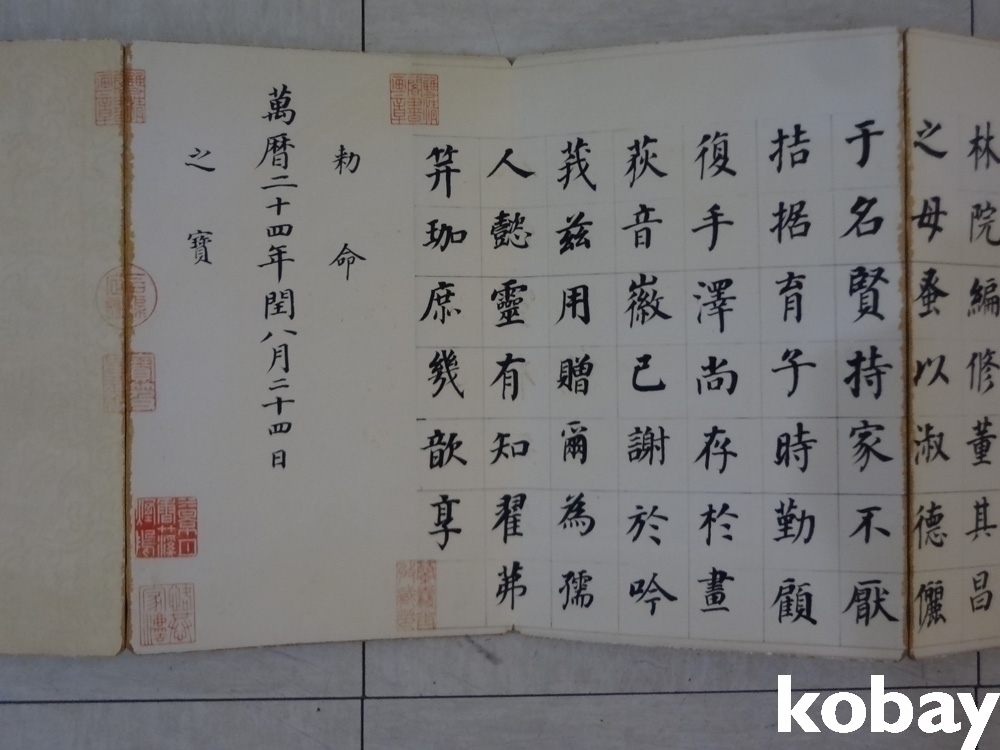 林院編修董其昌
之母蚤以淑德儷
于名賢持家不厭
拮据育子時勤顧
復手澤尚存於畫
荻音徽已謝於吟
莪茲用贈爾為孺
人懿靈有知翟茀
笄珈庶幾歆享
勑命
萬曆二十四年閏八月二十四日
之寶
kobay